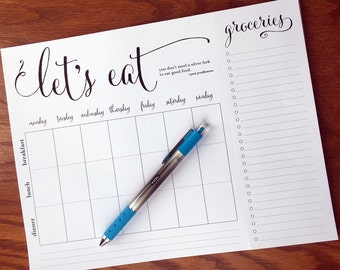 let's eat
you don't need a silver fork
to eat good food.
groceries
monday tuesday wednesday thursday friday saturday sunday
breakfast
lunch
dinner